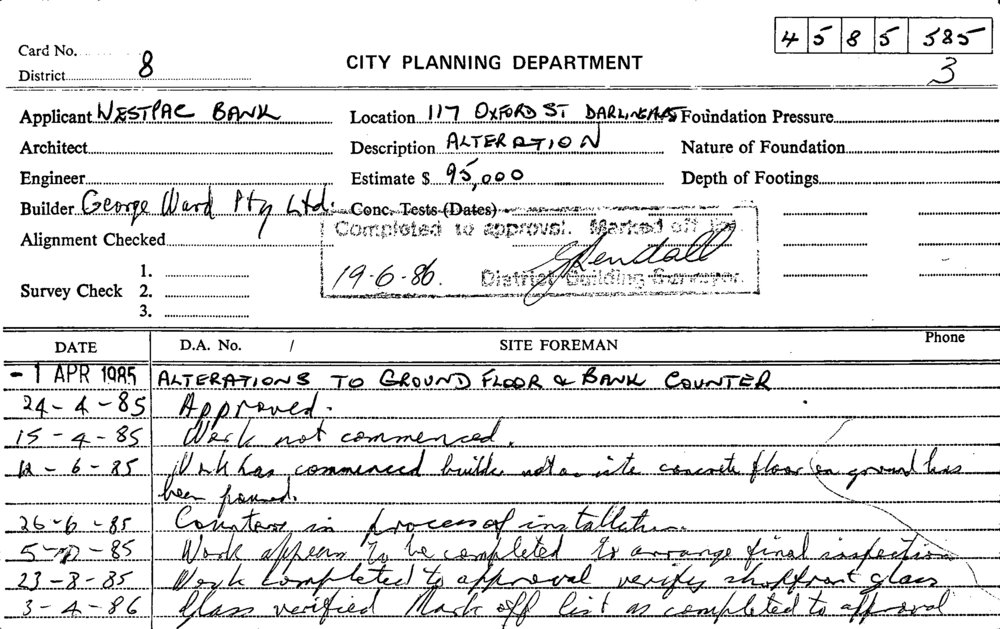 Card No.
4 5 8 5 585
District 8
CITY PLANNING DEPARTMENT
3
Applicant WESTPAC BANK
Location 117 OXFORD ST DARLINGHST
Foundation Pressure
Architect
Description ALTERATION
Nature of Foundation
Engineer
Estimate $ 95,000
Depth of Footings
Builder George Ward Pty Ltd.
Conc. Tests (Dates)
Completed to approval. Marked off
Alignment Checked
19-6-86.
District Building Surveyor.
Survey Check
1.
2.
3.
DATE
D.A. No. /
SITE FOREMAN
Phone
- 1 APR 1985 ALTERATIONS TO GROUND FLOOR & BANK COUNTER
24-4-85 Approved.
15-4-85 Work not commenced.
12-6-85 Work has commenced builder not on site concrete floor on ground has
been poured.
26-6-85 Counters in process of installation.
-85 Work appears to be completed to arrange final inspection
23-8-85 Work completed to approval verify shopfront glass
3-4-86 Glass verified Mark off list as completed to approval